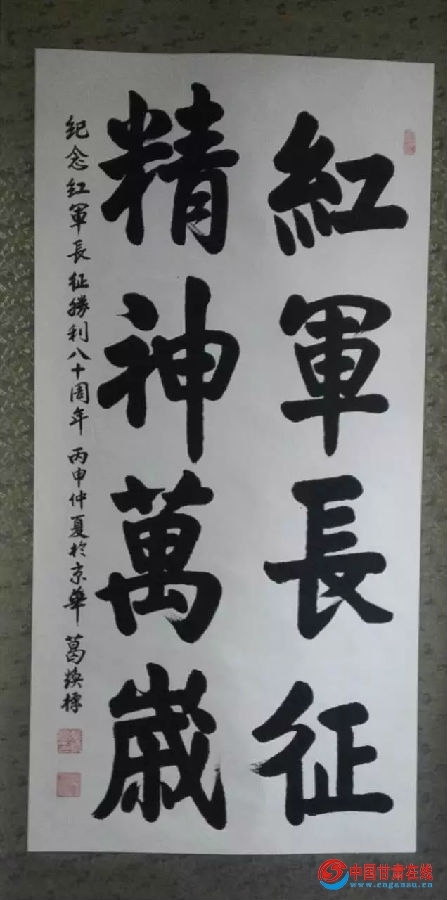 紅軍長征
精神萬歲
紀念紅軍長征勝利八十周年 丙申仲夏於京華 葛煥標
中国甘肃在线
www.cngansu.cn